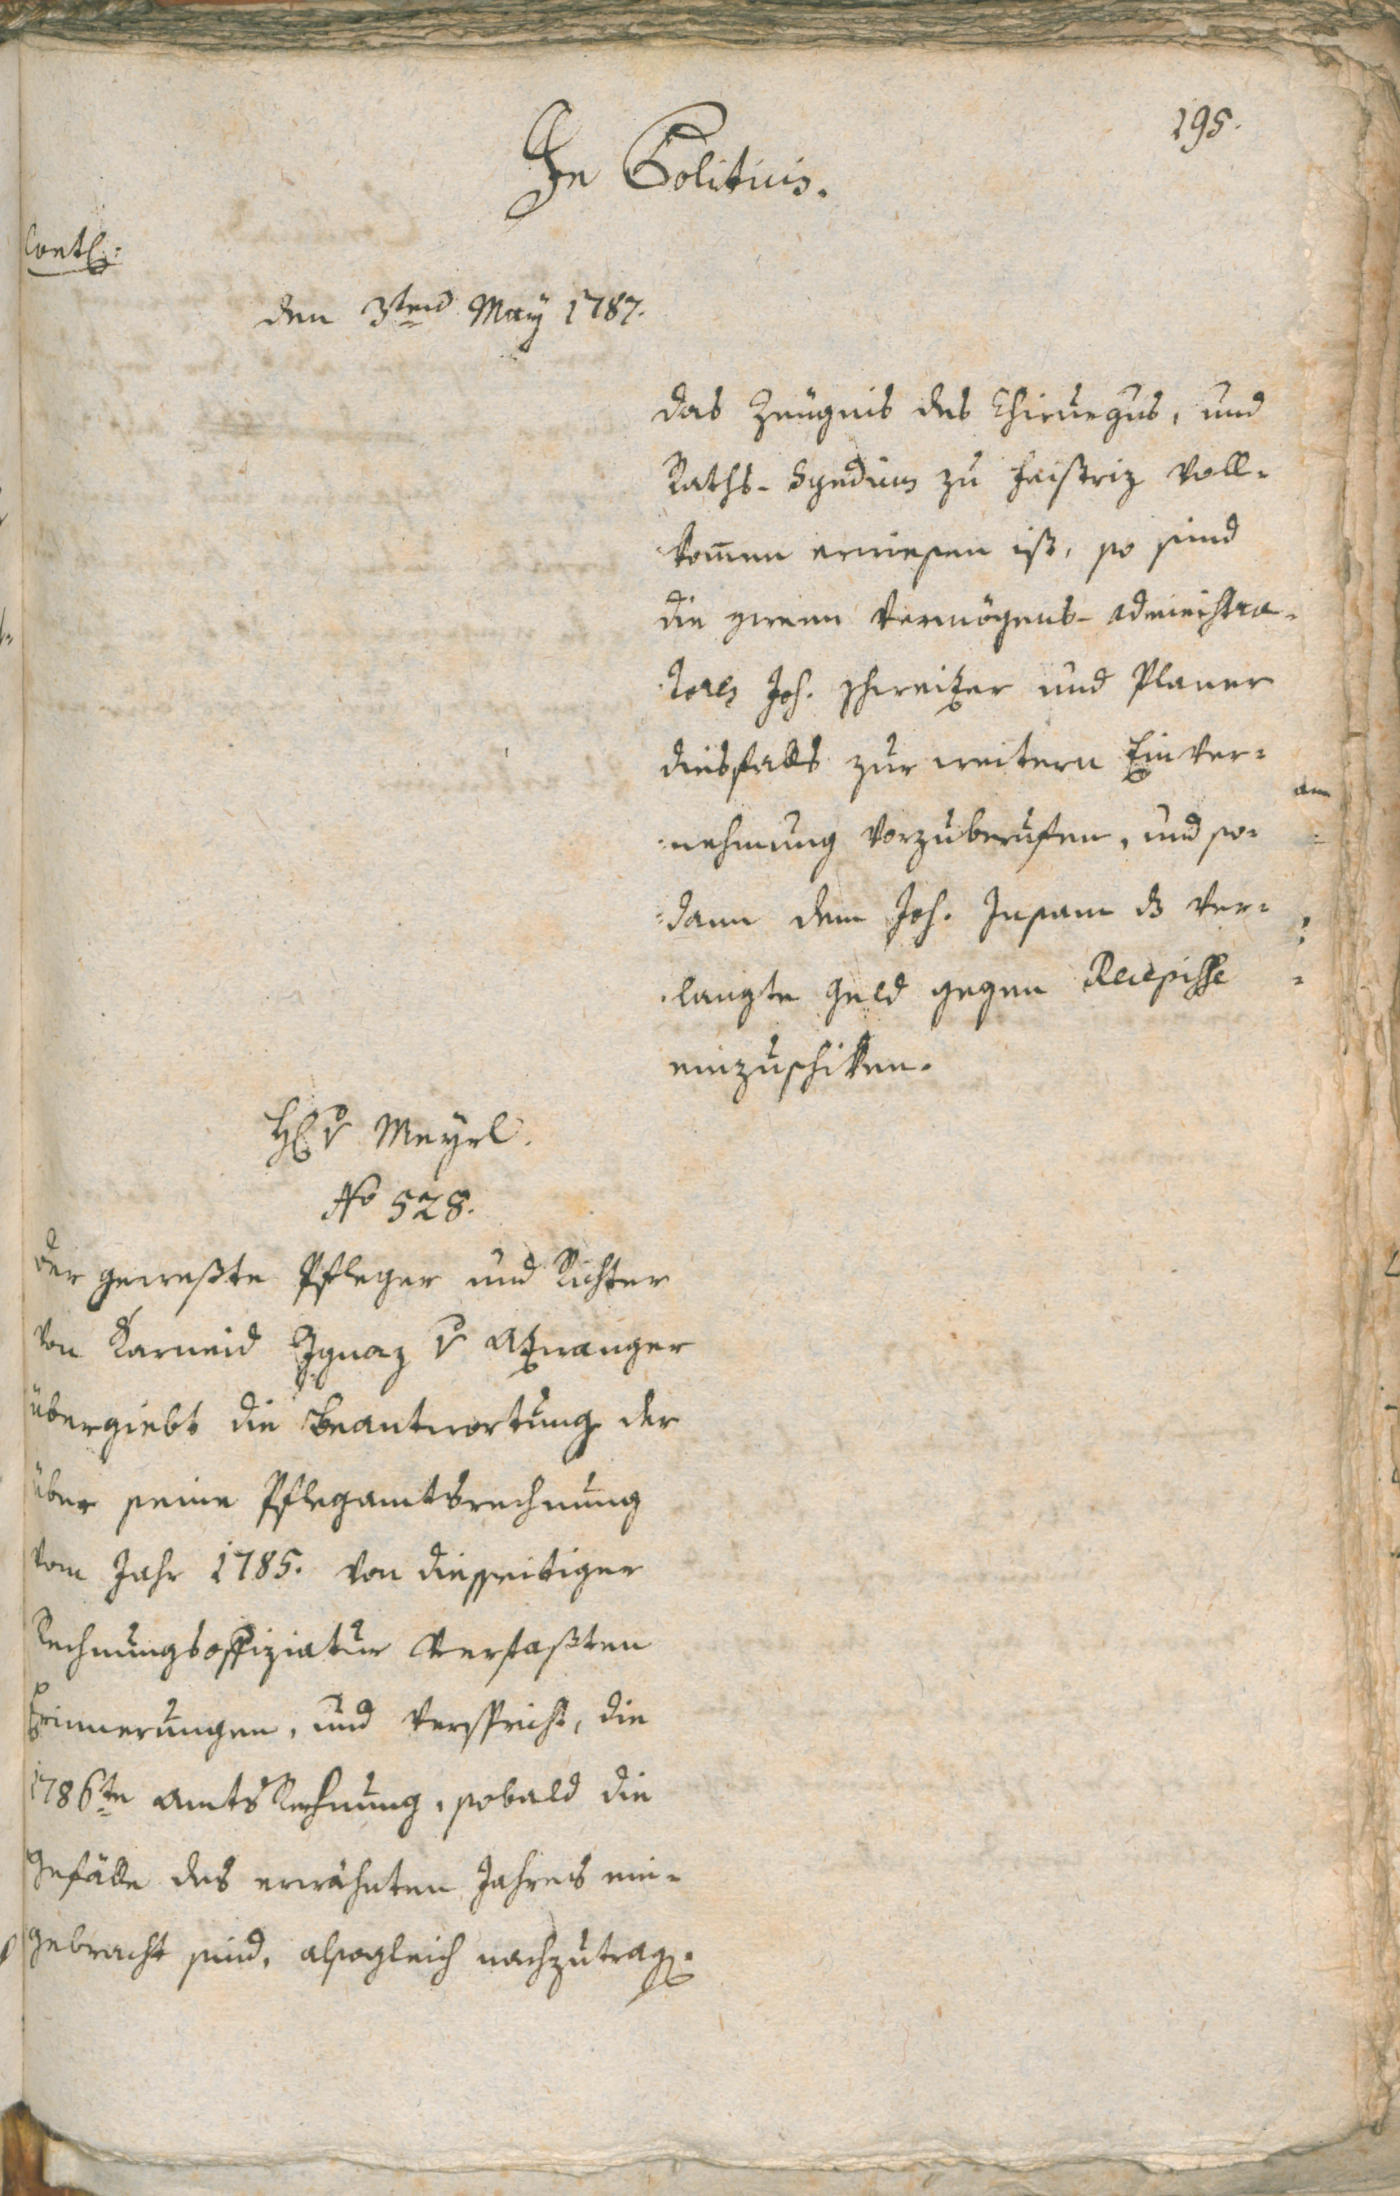 195.
In Politicis.
Contl:
den 3ten May 1787.
das Zeugnis des Chirurgus, und
Raths-Syndicus zu Feistriz voll-
kom̅en erwiesen ist, so sind
die zween Vermögens-Administra-
tores Joh. Schweitzer und Planer
diesfalls zur weitern Einver-
nehmung vorzuberufen, und so-
dann dem Joh. Insam ds ver-
langte Geld gegen Recepisse
einzuschiken.
H v Meyrl.
No 528.
Der geweßte Pfleger und Richter
von Karneid Ignaz v Atzwanger
übergiebt die Beantwortung der
über seine Pflegamtsrechnung
vom Jahr 1785. von diesseitiger
Rechnungsoffiziatur verfaßten
Erinnerungen, und verspricht, die
1786te Amts Rechnung, sobald die
Gefälle des erwähnten Jahres ein-
gebracht sind, alsogleich nachzutrag.